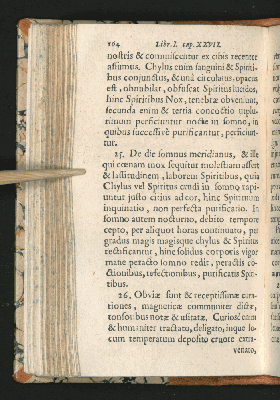 164 Libr. I. cap. XXVII.
nostris & commiscentur ex cibis recenter
assumtis. Chylus enim sanguini & Spiriti-
bus conjunctus, & unà circulatus, opacus
est, obnubilat, obfuscat Spiritus lucidos,
hinc Spiritibus Nox, tenebræ obveniunt,
secunda enim & tertia concoctio utpluˉ-
rimum perficiuntur nocte in somno, in
quibus successivè purificantur, perficiun-
tur.
25. De die somnus meridianus, & ille
qui cœnam mox sequitur molestiam affert
& lassitudinem, laborem Spiritibus, quia
Chylus vel Spiritus crudi in somno rapi-
untur justo citius ad cor, hinc Spirituum
inquinatio, non perfecta purificatio. In
somno autem nocturno, debito tempore
cepto, per aliquot horas continuato, per
gradus magis magisque chylus & Spiritus
rectificantur, hinc solidus corporis vigor
mane peracto somno redit, peractis co-
ctionibus, refectionibus, purificatis Spi-
ritibus.
26. Obviæ sunt & receptissimæ cura-
tiones, magneticæ communiter dictæ,
tonsoribus notæ & usitatæ. Curiosè eam
& humaniter tractato, deligato, inque lo-
cum temperatum deposito cruore extra-
venato,